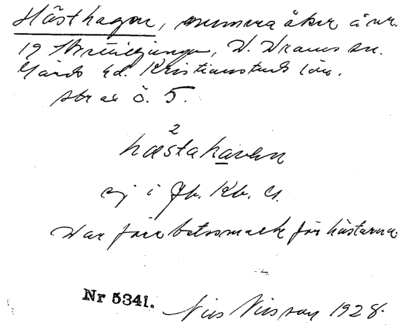 Hästhagen, numera åker å nr.
19 Ströälyngen, V. Vrams sn.
Gärds hd. Kristianstads län.
str ax ö. 5.
2
hæstahaven
ej i Jb. Kb. U.
Var förr betesmark för hästarna.
Nr 5341. Nils Nilsson 1928.